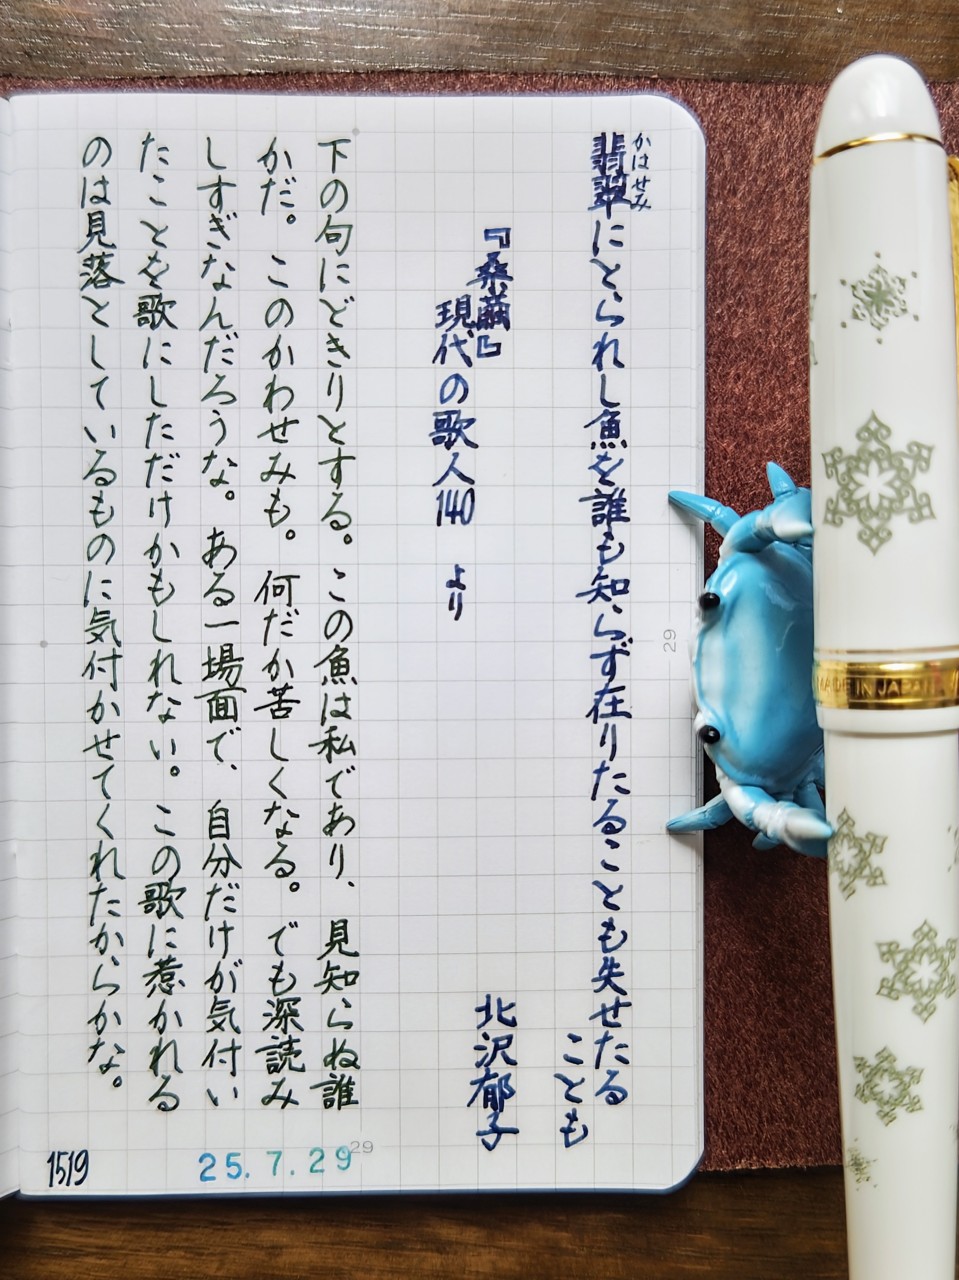 翡翠にとられし魚を誰も知らず在りたることも失せたる
かはせみ
ことも
北沢郁子
『桑繭』
現代の歌人140 より
下の句にどきりとする。この魚は私であり、見知らぬ誰
かだ。このかわせみも。何だか苦しくなる。でも深読み
しすぎなんだろうな。ある一場面で、自分だけが気付い
たことを歌にしただけかもしれない。この歌に惹かれる
のは見落としているものに気付かせてくれたからかな。
1519
25.7.29
29
29
MADE IN JAPAN